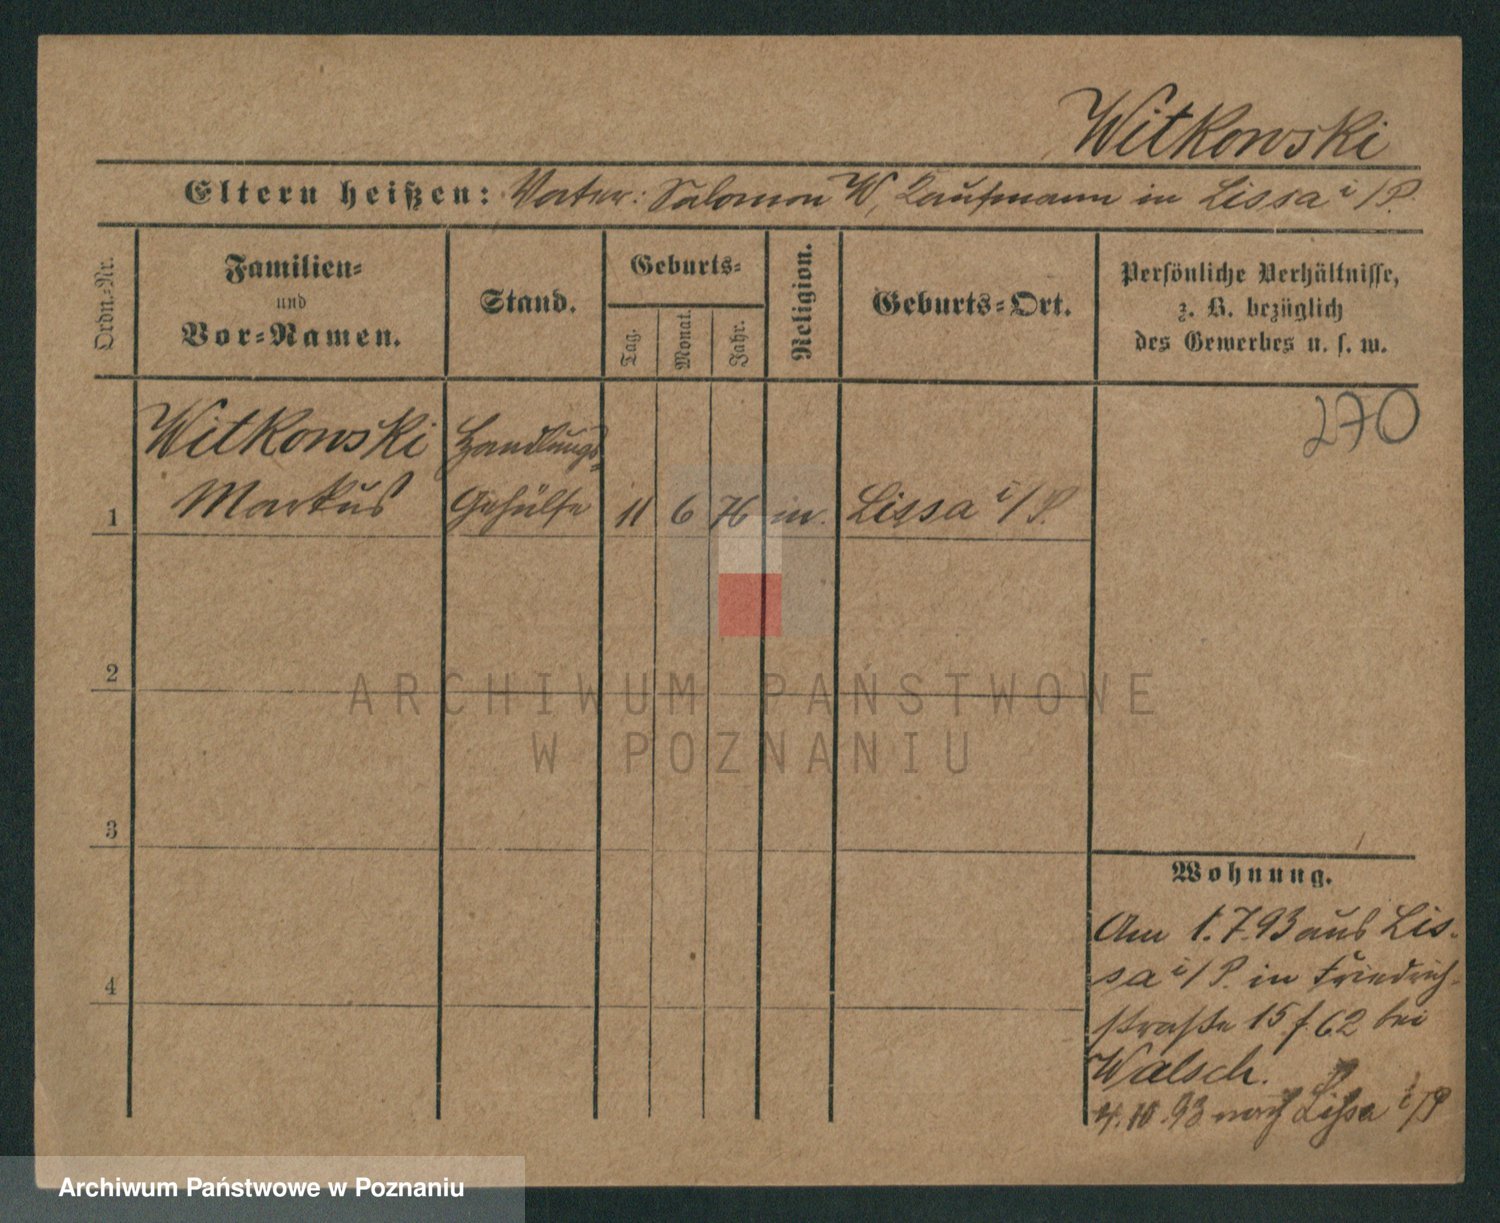 Witkowski
Eltern heißen: Vater: Salomon W, Kaufmann in Lissa i/P.
Ordn.-Nr.
Familien-
und
Vor-Namen.
Stand.
Geburts-
Tag.
Monat.
Jahr.
Religion.
Geburts-Ort.
Persönliche Verhältnisse,
z. B. bezüglich
des Gewerbes u. s. w.
270
Witkowski Handlungs-
1 Markus Gehülfe 11 6 76 Lissa i/P.
2
3
4
Wohnung.
Am 1.7.93 aus Lis-
sa i/P. in Friedrich-
straße 15 f 62 bei
Walsch.
4.10.93 nach Lissa i/P
ARCHIWUM PAŃSTWOWE
W POZNANIU
Archiwum Państwowe w Poznaniu